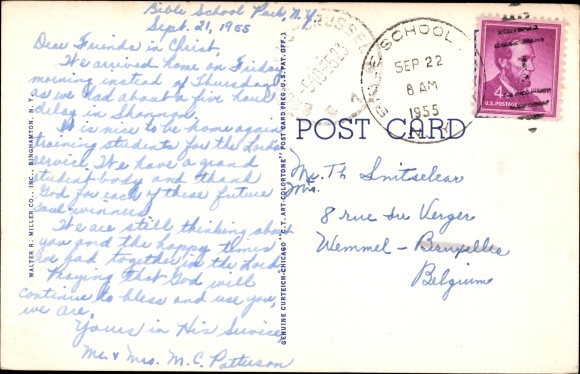 Bible School Park, N.Y.
Sept. 21, 1955
Dear Friends in Christ,
We arrived home on Friday
morning instead of Thursday
as we had about a five hour
delay in Shannon.
It is nice to be home again
training students for the Lord's
service. We have a grand
student body and thank
God for each of these future
soul-winners!
We are still thinking about
you and the happy times
we had together in the Lord.
Praying that God will
continue to bless and use you,
we are,
Yours in His Service,
Mr. & Mrs. M. C. Patterson
WALTER R. MILLER CO., INC., BINGHAMTON, N. Y.
GENUINE CURTEICH-CHICAGO "C.T. ART-COLORTONE" POST CARD (REG. U.S. PAT. OFF.)
BIBLE SCHOOL
SEP 22
8 AM
1955
4¢
U.S. POSTAGE
POST CARD
Mr. Th Snitselaar
Mrs.
8 rue du Verger
Wemmel - Bruxelles
Belgium